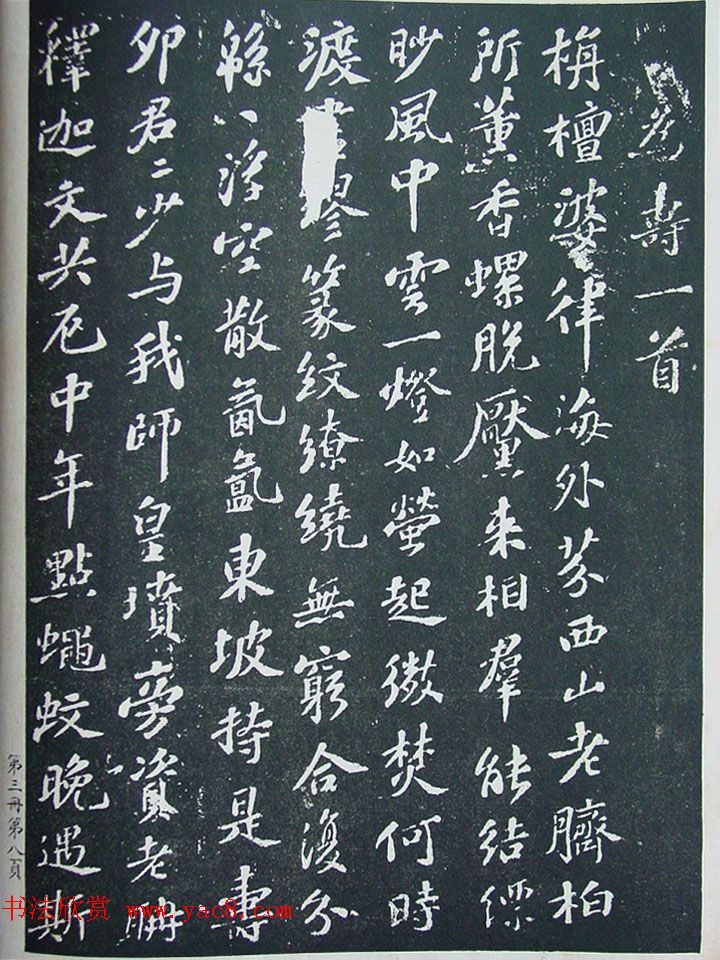 為壽一首
栴檀婆律海外芬西山老臍柏
所薰香螺脫黶来相羣能結縹
眇風中雲一燈如螢起微焚何時
渡盡繆篆紋繚繞無窮合復分
緜〻浮空散氤氳東坡持是壽
卯君〻少与我師皇墳旁資老聃
釋迦文共厄中年點蠅蚊晚遇斯
第三冊第八頁
书法欣赏 www.yac8.com